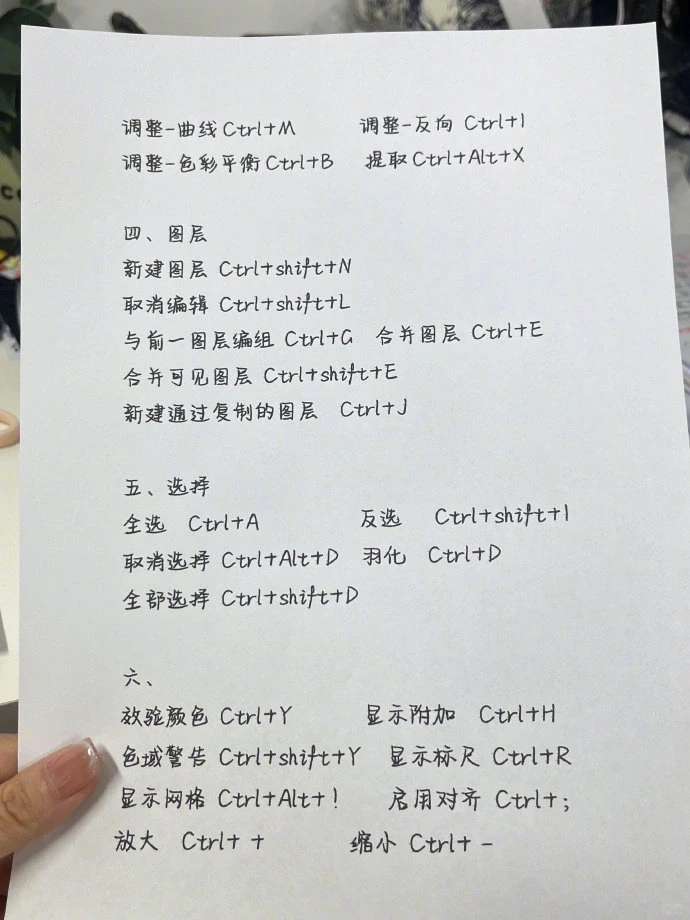 调整-曲线 Ctrl+M 调整-反向 Ctrl+I
调整-色彩平衡 Ctrl+B 提取 Ctrl+Alt+X
四、图层
新建图层 Ctrl+shift+N
取消编辑 Ctrl+shift+L
与前一图层编组 Ctrl+G 合并图层 Ctrl+E
合并可见图层 Ctrl+shift+E
新建通过复制的图层 Ctrl+J
五、选择
全选 Ctrl+A 反选 Ctrl+shift+I
取消选择 Ctrl+Alt+D 羽化 Ctrl+D
全部选择 Ctrl+shift+D
六、
效验颜色 Ctrl+Y 显示附加 Ctrl+H
色域警告 Ctrl+shift+Y 显示标尺 Ctrl+R
显示网格 Ctrl+Alt+! 启用对齐 Ctrl+;
放大 Ctrl+ + 缩小 Ctrl+ -